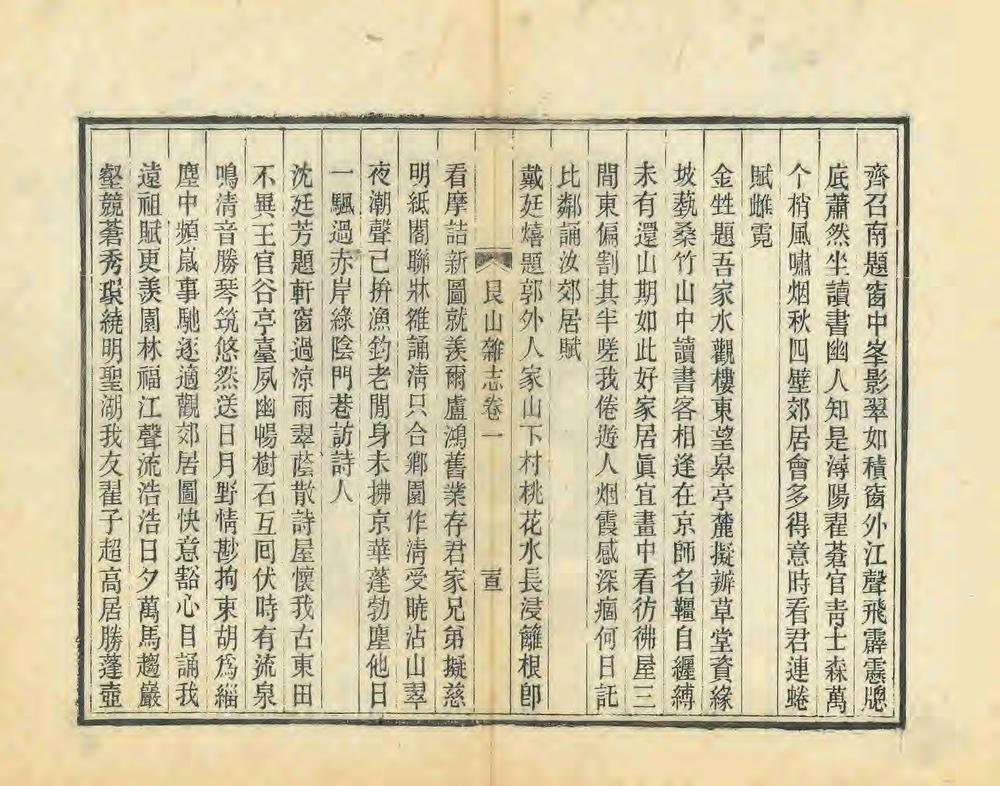 齊召南題窗中峯影翠如積窗外江聲飛霹靂牕
底蕭然坐讀書幽人知是潯陽翟蒼官靑士森萬
个梢風嘯烟秋四壁郊居會多得意時看君連蜷
賦雌霓
金甡題吾家水觀樓東望皋亭麓擬辦草堂資緣
坡蓺桑竹山中讀書客相逢在京師名韁自纏縛
未有還山期如此好家居眞宜畫中看彷彿屋三
間東偏割其半嗟我倦遊人烟霞感深痼何日託
比鄰誦汝郊居賦
戴廷熺題郭外人家山下村桃花水長浸籬根卽
艮山雜志卷一
亘
看摩詰新圖就羨爾盧鴻舊業存君家兄弟擬慈
明紙閣聯牀雒誦淸只合鄉園作淸受曉沾山翠
夜潮聲已拚漁釣老閒身未拂京華蓬勃塵他日
一颿過赤岸綠陰門巷訪詩人
沈廷芳題軒窗過涼雨翠蔭散詩屋懷我古東田
不異王官谷亭臺夙幽暢樹石互囘伏時有流泉
鳴淸音勝琴筑悠然送日月野情尠拘束胡爲緇
塵中頻歲事馳逐適觀郊居圖快意豁心目誦我
遠祖賦更羨園林福江聲流浩浩日夕萬馬趨巖
壑競蒼秀環繞明聖湖我友翟子超高居勝蓬壺